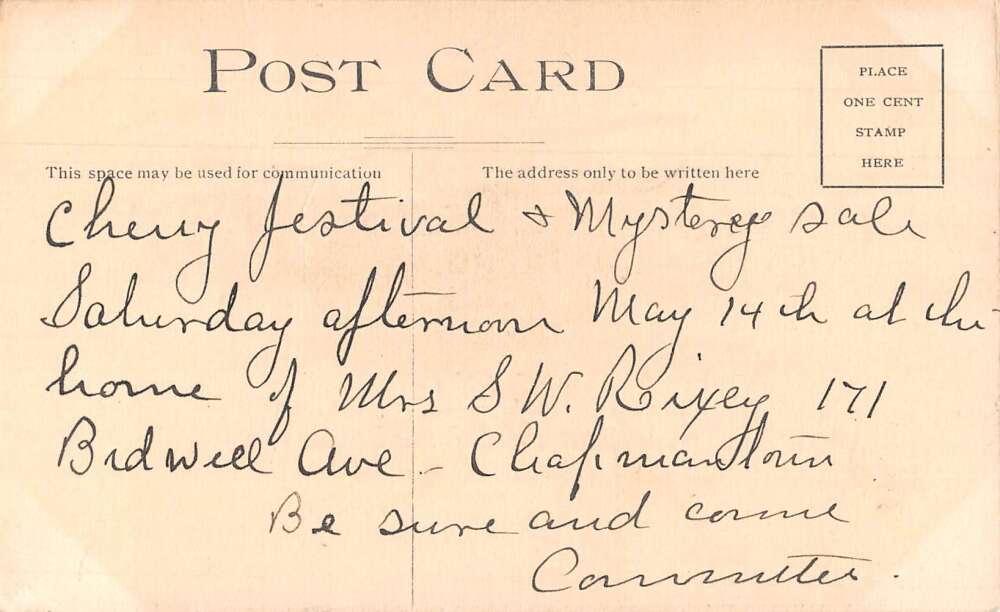 POST CARD
PLACE
ONE CENT
STAMP
HERE
This space may be used for communication
The address only to be written here
Cherry festival & Mysterey sale
Saturday afternoon May 14th at the
home of Mrs S W. Rixey 171
Bidwell Ave - Chapmantown
Be sure and come
Committee.